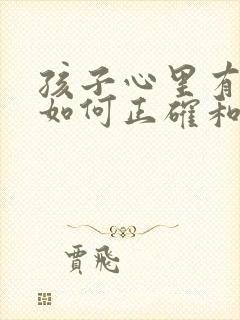 孩子心里有
如何正確和
賈飛